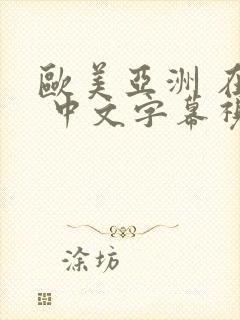 歐美亞洲
中文字幕
涂坊